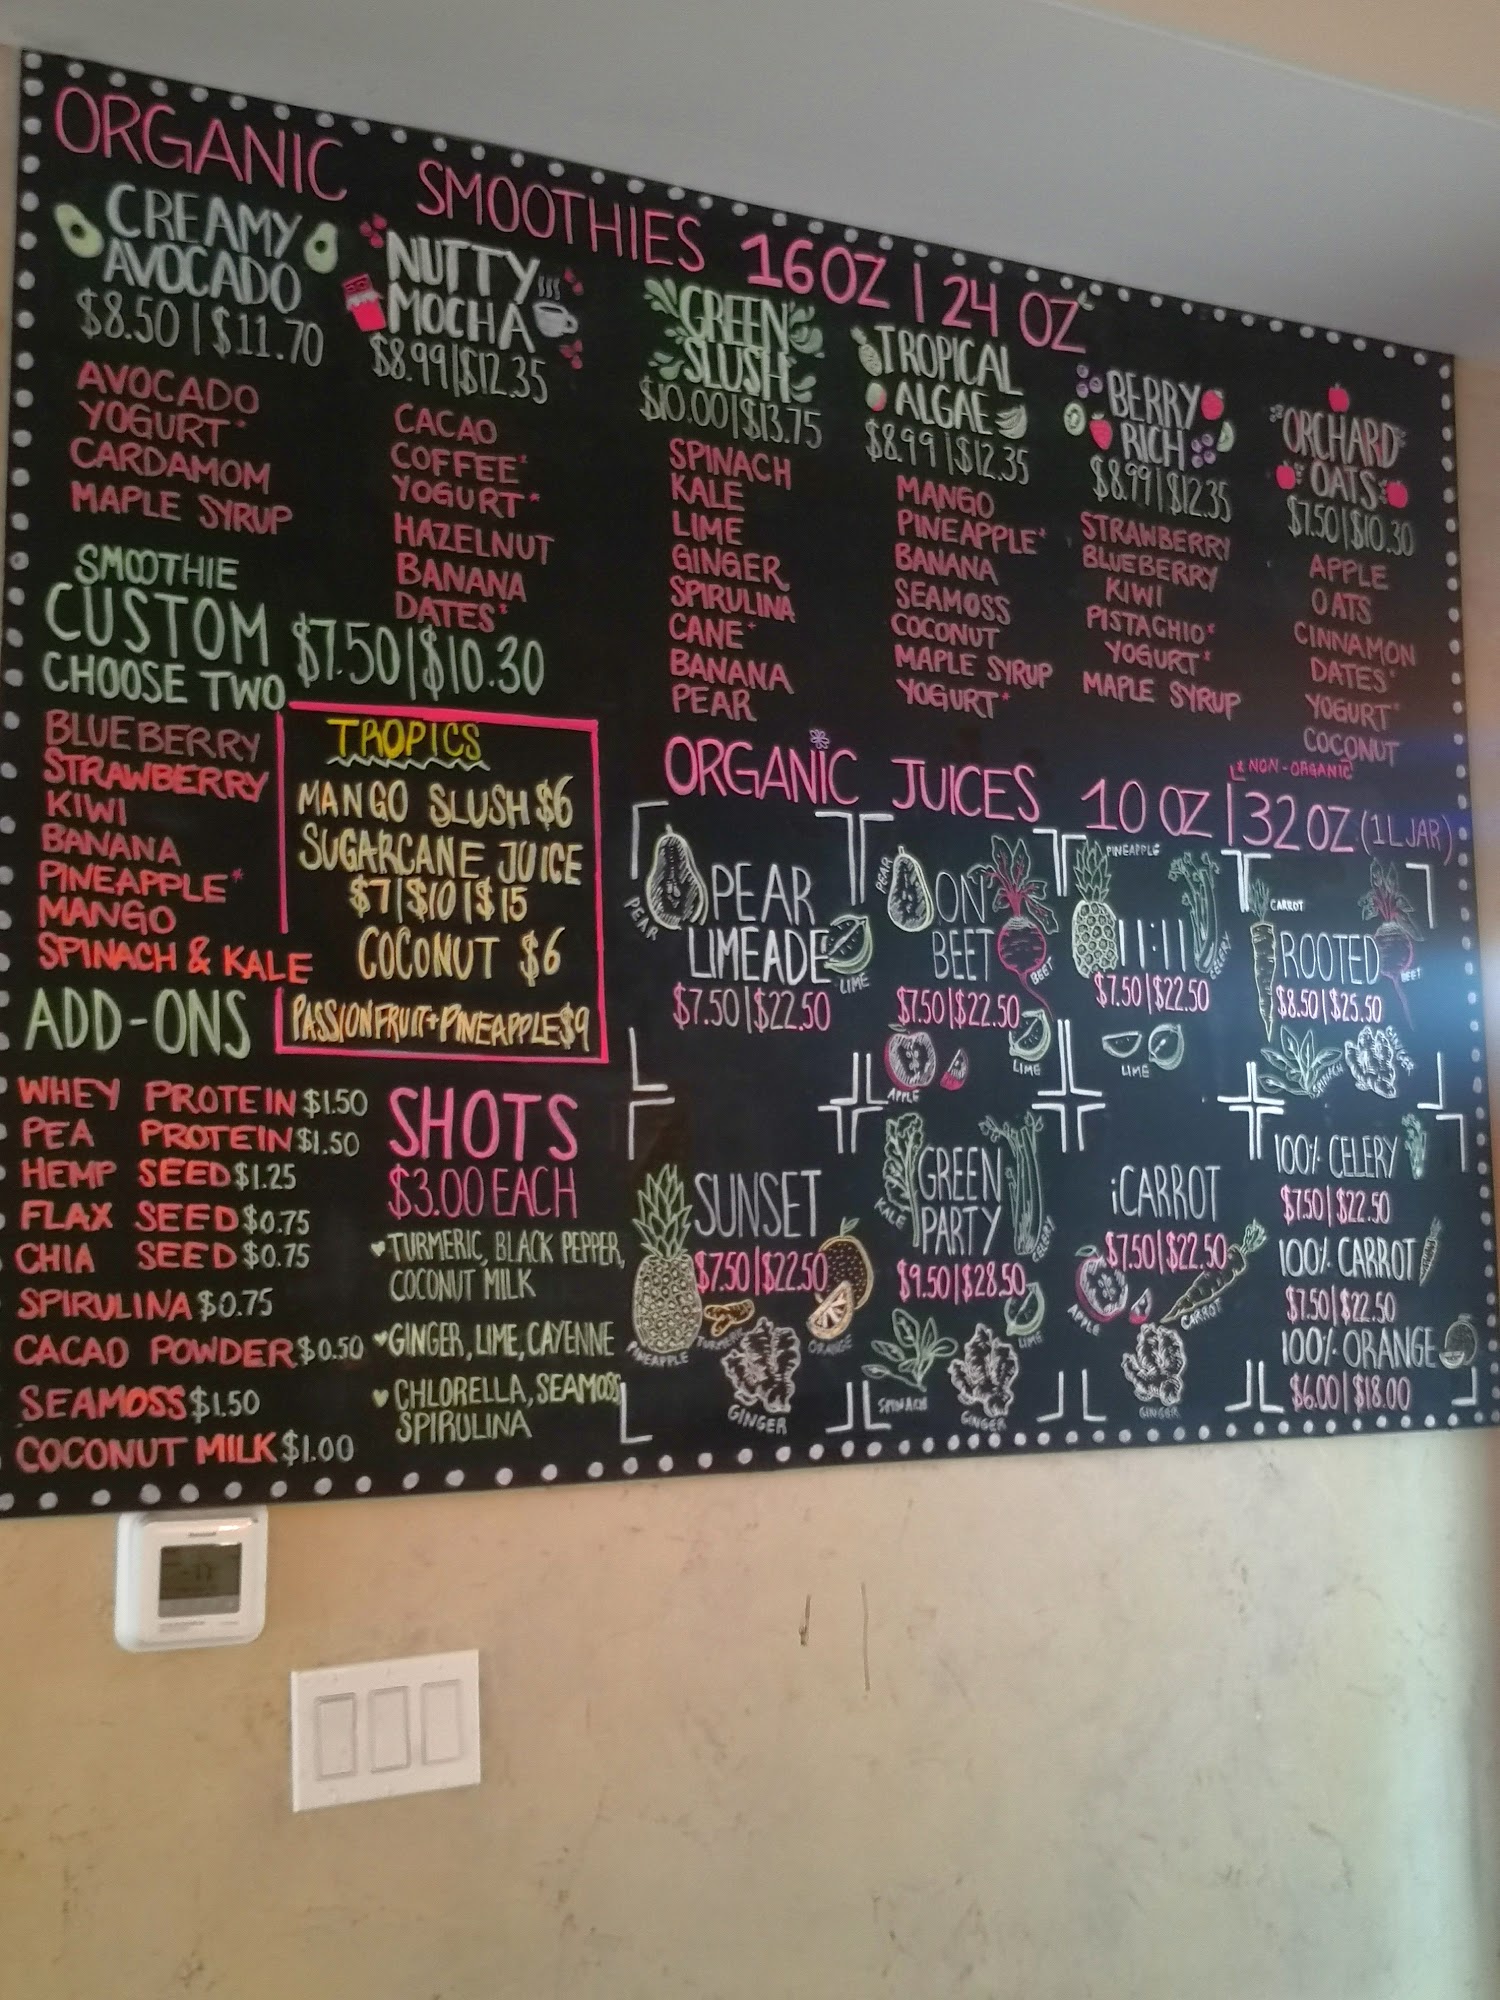 ORGANIC SMOOTHIES 16OZ | 24 OZ
CREAMY
AVOCADO
$8.50 | $11.70
AVOCADO
YOGURT*
CARDAMOM
MAPLE SYRUP
NUTTY
MOCHA
$8.99 | $12.35
CACAO
COFFEE*
YOGURT*
HAZELNUT
BANANA
DATES*
GREEN
SLUSH
$10.00 | $13.75
SPINACH
KALE
LIME
GINGER
SPIRULINA
CANE*
BANANA
PEAR
TROPICAL
ALGAE
$8.99 | $12.35
MANGO
PINEAPPLE*
BANANA
SEAMOSS
COCONUT
MAPLE SYRUP
YOGURT*
BERRY
RICH
$8.99 | $12.35
STRAWBERRY
BLUEBERRY
KIWI
PISTACHIO*
YOGURT*
MAPLE SYRUP
ORCHARD
OATS
$7.50 | $10.30
APPLE
OATS
CINNAMON
DATES*
YOGURT*
COCONUT
* NON-ORGANIC
SMOOTHIE
CUSTOM $7.50 | $10.30
CHOOSE TWO
BLUEBERRY
STRAWBERRY
KIWI
BANANA
PINEAPPLE*
MANGO
SPINACH & KALE
TROPICS
MANGO SLUSH $6
SUGARCANE JUICE
$7 | $10 | $15
COCONUT $6
PASSIONFRUIT+PINEAPPLE $9
ADD-ONS
WHEY PROTEIN $1.50
PEA PROTEIN $1.50
HEMP SEED $1.25
FLAX SEED $0.75
CHIA SEED $0.75
SPIRULINA $0.75
CACAO POWDER $0.50
SEAMOSS $1.50
COCONUT MILK $1.00
SHOTS
$3.00 EACH
♥TURMERIC, BLACK PEPPER,
COCONUT MILK
♥GINGER, LIME, CAYENNE
♥CHLORELLA, SEAMOSS
SPIRULINA
ORGANIC JUICES 10 OZ | 32 OZ (1L JAR)
PEAR
LIMEADE
$7.50 | $22.50
PEAR
LIME
ON
BEET
$7.50 | $22.50
PEAR
BEET
APPLE
LIME
PINEAPPLE
11:11
$7.50 | $22.50
CELERY
LIME
CARROT
ROOTED
$8.50 | $25.50
BEET
SPINACH
GINGER
SUNSET
$7.50 | $22.50
PINEAPPLE
TURMERIC
ORANGE
GINGER
GREEN
PARTY
$9.50 | $28.50
KALE
CELERY
LIME
SPINACH
GINGER
iCARROT
$7.50 | $22.50
APPLE
CARROT
GINGER
100% CELERY
$7.50 | $22.50
100% CARROT
$7.50 | $22.50
100% ORANGE
$6.00 | $18.00